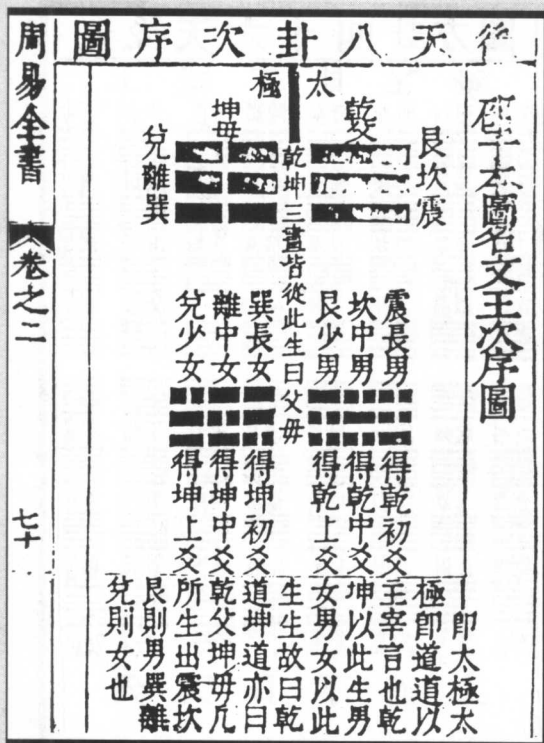 後天八卦次序圖
本圖名文王次序圖
太極
乾父
艮坎震
坤母
兌離巽
乾坤三畫皆從此生曰父母
震長男
得乾初爻
坎中男
得乾中爻
艮少男
得乾上爻
巽長女
得坤初爻
離中女
得坤中爻
兌少女
得坤上爻
即太極太
極即道道以
主宰言也乾
坤以此生男
女男女以此
生生故曰乾
道坤道亦曰
乾父坤母凡
所生出震坎
艮則男巽離
兌則女也
周易全書
卷之二
七十